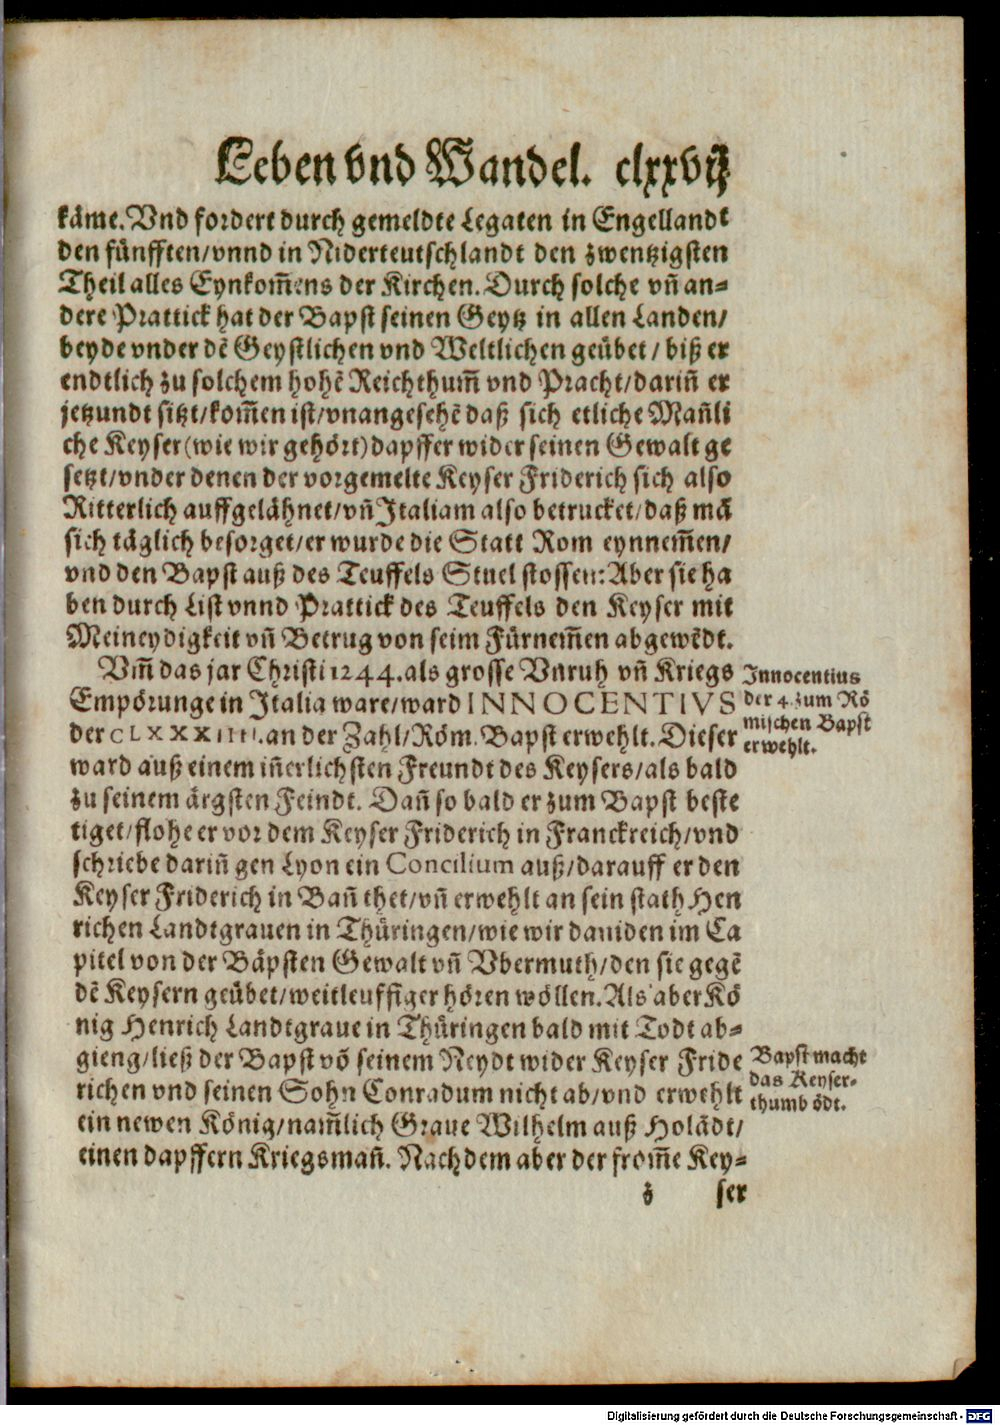 Leben vnd Wandel. clxxvij
käme. Vnd fordert durch gemeldte Legaten in Engellandt
den fünfften/vnnd in Niderteutschlandt den zwentzigsten
Theil alles Eynkom̄ens der Kirchen. Durch solche vn̄ an-
dere Prattick hat der Bapst seinen Geytz in allen Landen/
beyde vnder dē Geystlichen vnd Weltlichen geübet / biß er
endtlich zu solchem hohē Reichthum̄ vnd Pracht/darin̄ er
jetzundt sitzt/kom̄en ist/vnangesehē daß sich etliche Man̄li
che Keyser(wie wir gehört)dapffer wider seinen Gewalt ge
setzt/vnder denen der vorgemelte Keyser Friderich sich also
Ritterlich auffgelähnet/vn̄ Italiam also betrucket/daß mā
sich täglich besorget/er wurde die Statt Rom eynnem̄en/
vnd den Bapst auß des Teuffels Stuel stossen: Aber sie ha
ben durch List vnnd Prattick des Teuffels den Keyser mit
Meineydigkeit vn̄ Betrug von seim Fürnem̄en abgewēdt.
Vm̄ das jar Christi 1244. als grosse Vnruh vn̄ Kriegs
Empörunge in Italia ware/ward INNOCENTIVS
der CLXXXIIII. an der Zahl/Röm. Bapst erwehlt. Dieser
ward auß einem in̄erlichsten Freundt des Keysers/als bald
zu seinem ärgsten Feindt. Dan̄ so bald er zum Bapst beste
tiget/flohe er vor dem Keyser Friderich in Franckreich/vnd
schriebe darin̄ gen Lyon ein Concilium auß/darauff er den
Keyser Friderich in Ban̄ thet/vn̄ erwehlt an sein stath Hen
richen Landtgrauen in Thüringen/wie wir dauiden im Ca
pitel von der Bäpsten Gewalt vn̄ Vbermuth/den sie gegē
dē Keysern geübet/weitleuffiger hören wöllen. Als aber Kö
nig Henrich Landtgraue in Thüringen bald mit Todt ab-
gieng/ließ der Bapst vō seinem Neydt wider Keyser Fride
richen vnd seinen Sohn Conradum nicht ab/vnd erwehlt
ein newen König/nam̄lich Graue Wilhelm auß Holādt/
einen dapffern Kriegsman̄. Nach dem aber der from̄e Key-
z ser
Innocentius
der 4. zum Rö
mischen Bapst
erwehlt.
Bapst macht
das Keyser-
thumb ödt.
Digitalisierung gefördert durch die Deutsche Forschungsgemeinschaft - DFG